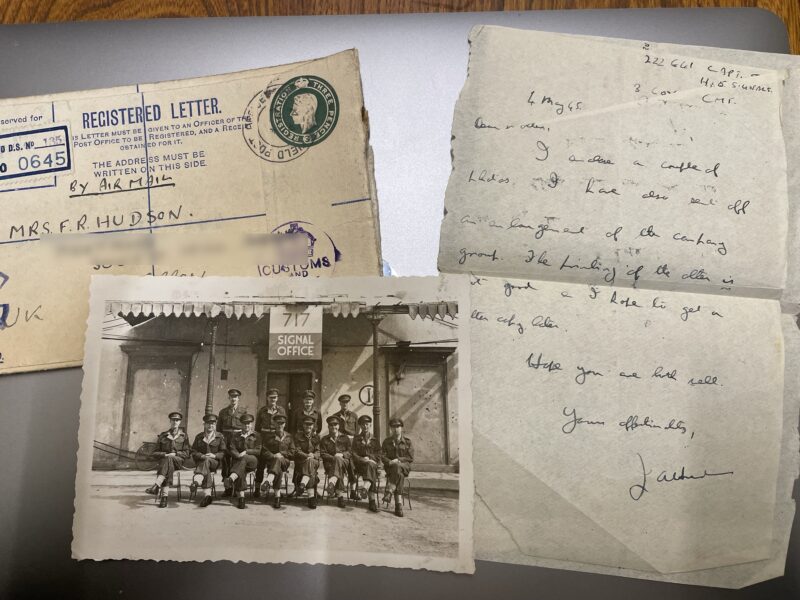 REGISTERED LETTER.
THE ADDRESS MUST BE
WRITTEN ON THIS SIDE.
POST OFFICE TO BE REGISTERED, AND A RECEIPT
LETTER MUST BE GIVEN TO AN OFFICER OF THE
OBTAINED FOR IT.
REGISTRATION
THREE PENCE
D.S. No 135
0645
BY AIR MAIL
MRS. F. R. HUDSON.
UK
CUSTOMS
AND
717
SIGNAL
OFFICE
1
222661 CAPT.
SIGNALS
CMF.
4 May 45.
I enclose a couple of
photos. I have also sent off
an enlargement of the company
group. The printing of the other is
good & I hope to get a
copy later.
Hope you are both well.
Yours affectionately,